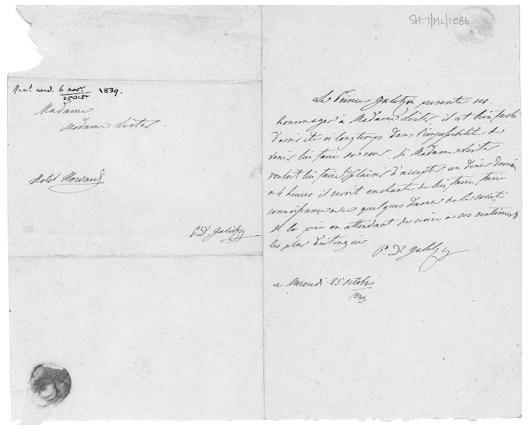 SH:7/ML/1086
6 nov.
25 Oct
1839.
Madame
Madame Lister
Hotel Howard
P. D. Galitzin
Le Prince Galitzin présente ses
hommages à Madame Lister, il est très faché
d'avoir été si longtems dans l'impossibilité de
venir lui faire sa cour. Si Madame Lister
vouloit lui faire le plaisir d'accepter un diner demain
a 4 heures il seroit enchanté de lui faire faire
connaissance avec quelques Dames de la société
Il la prie en attendant de croire a ses sentiments
les plus distingués
P. D. Galitzin
ce Mercredi 25 octobre
1839